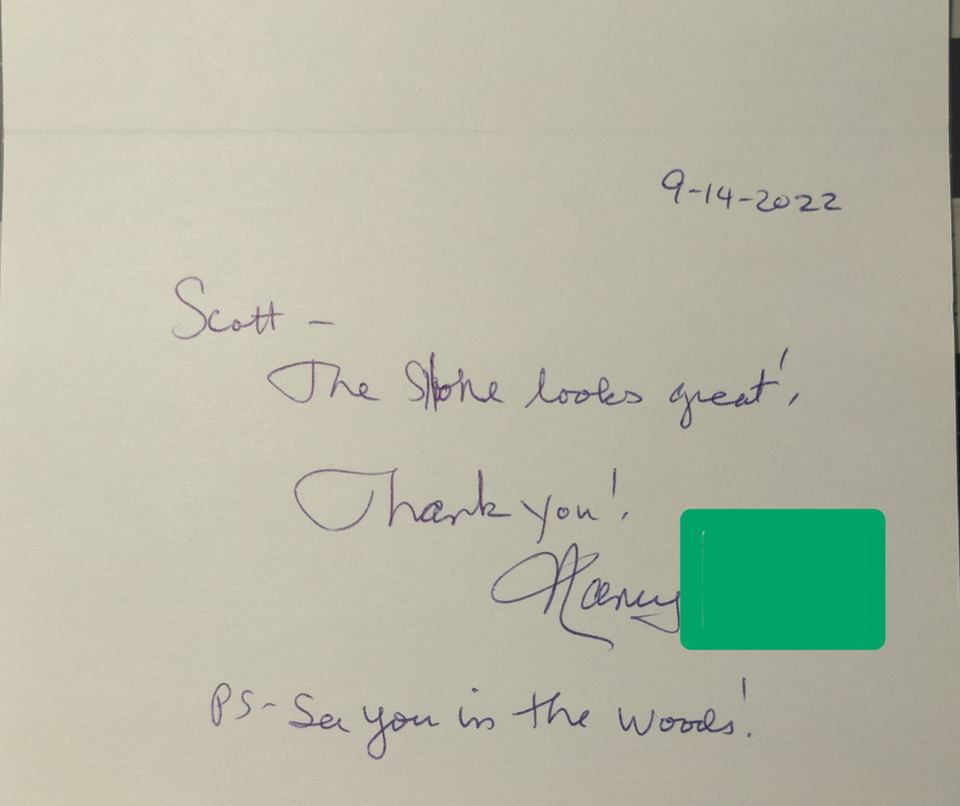 9-14-2022
Scott -
The Stone looks great!
Thank you!
Nancy
PS- See you in the woods!